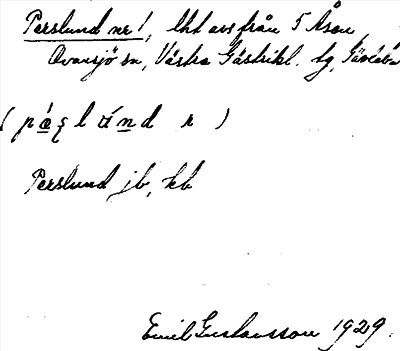 Perslund nr 1, lht avs från 5 Åsen
Ovansjö sn, Västra Gästrikl. tg, Gävleb.
Perslund jb, kb
Emil Gustavsson 1929.